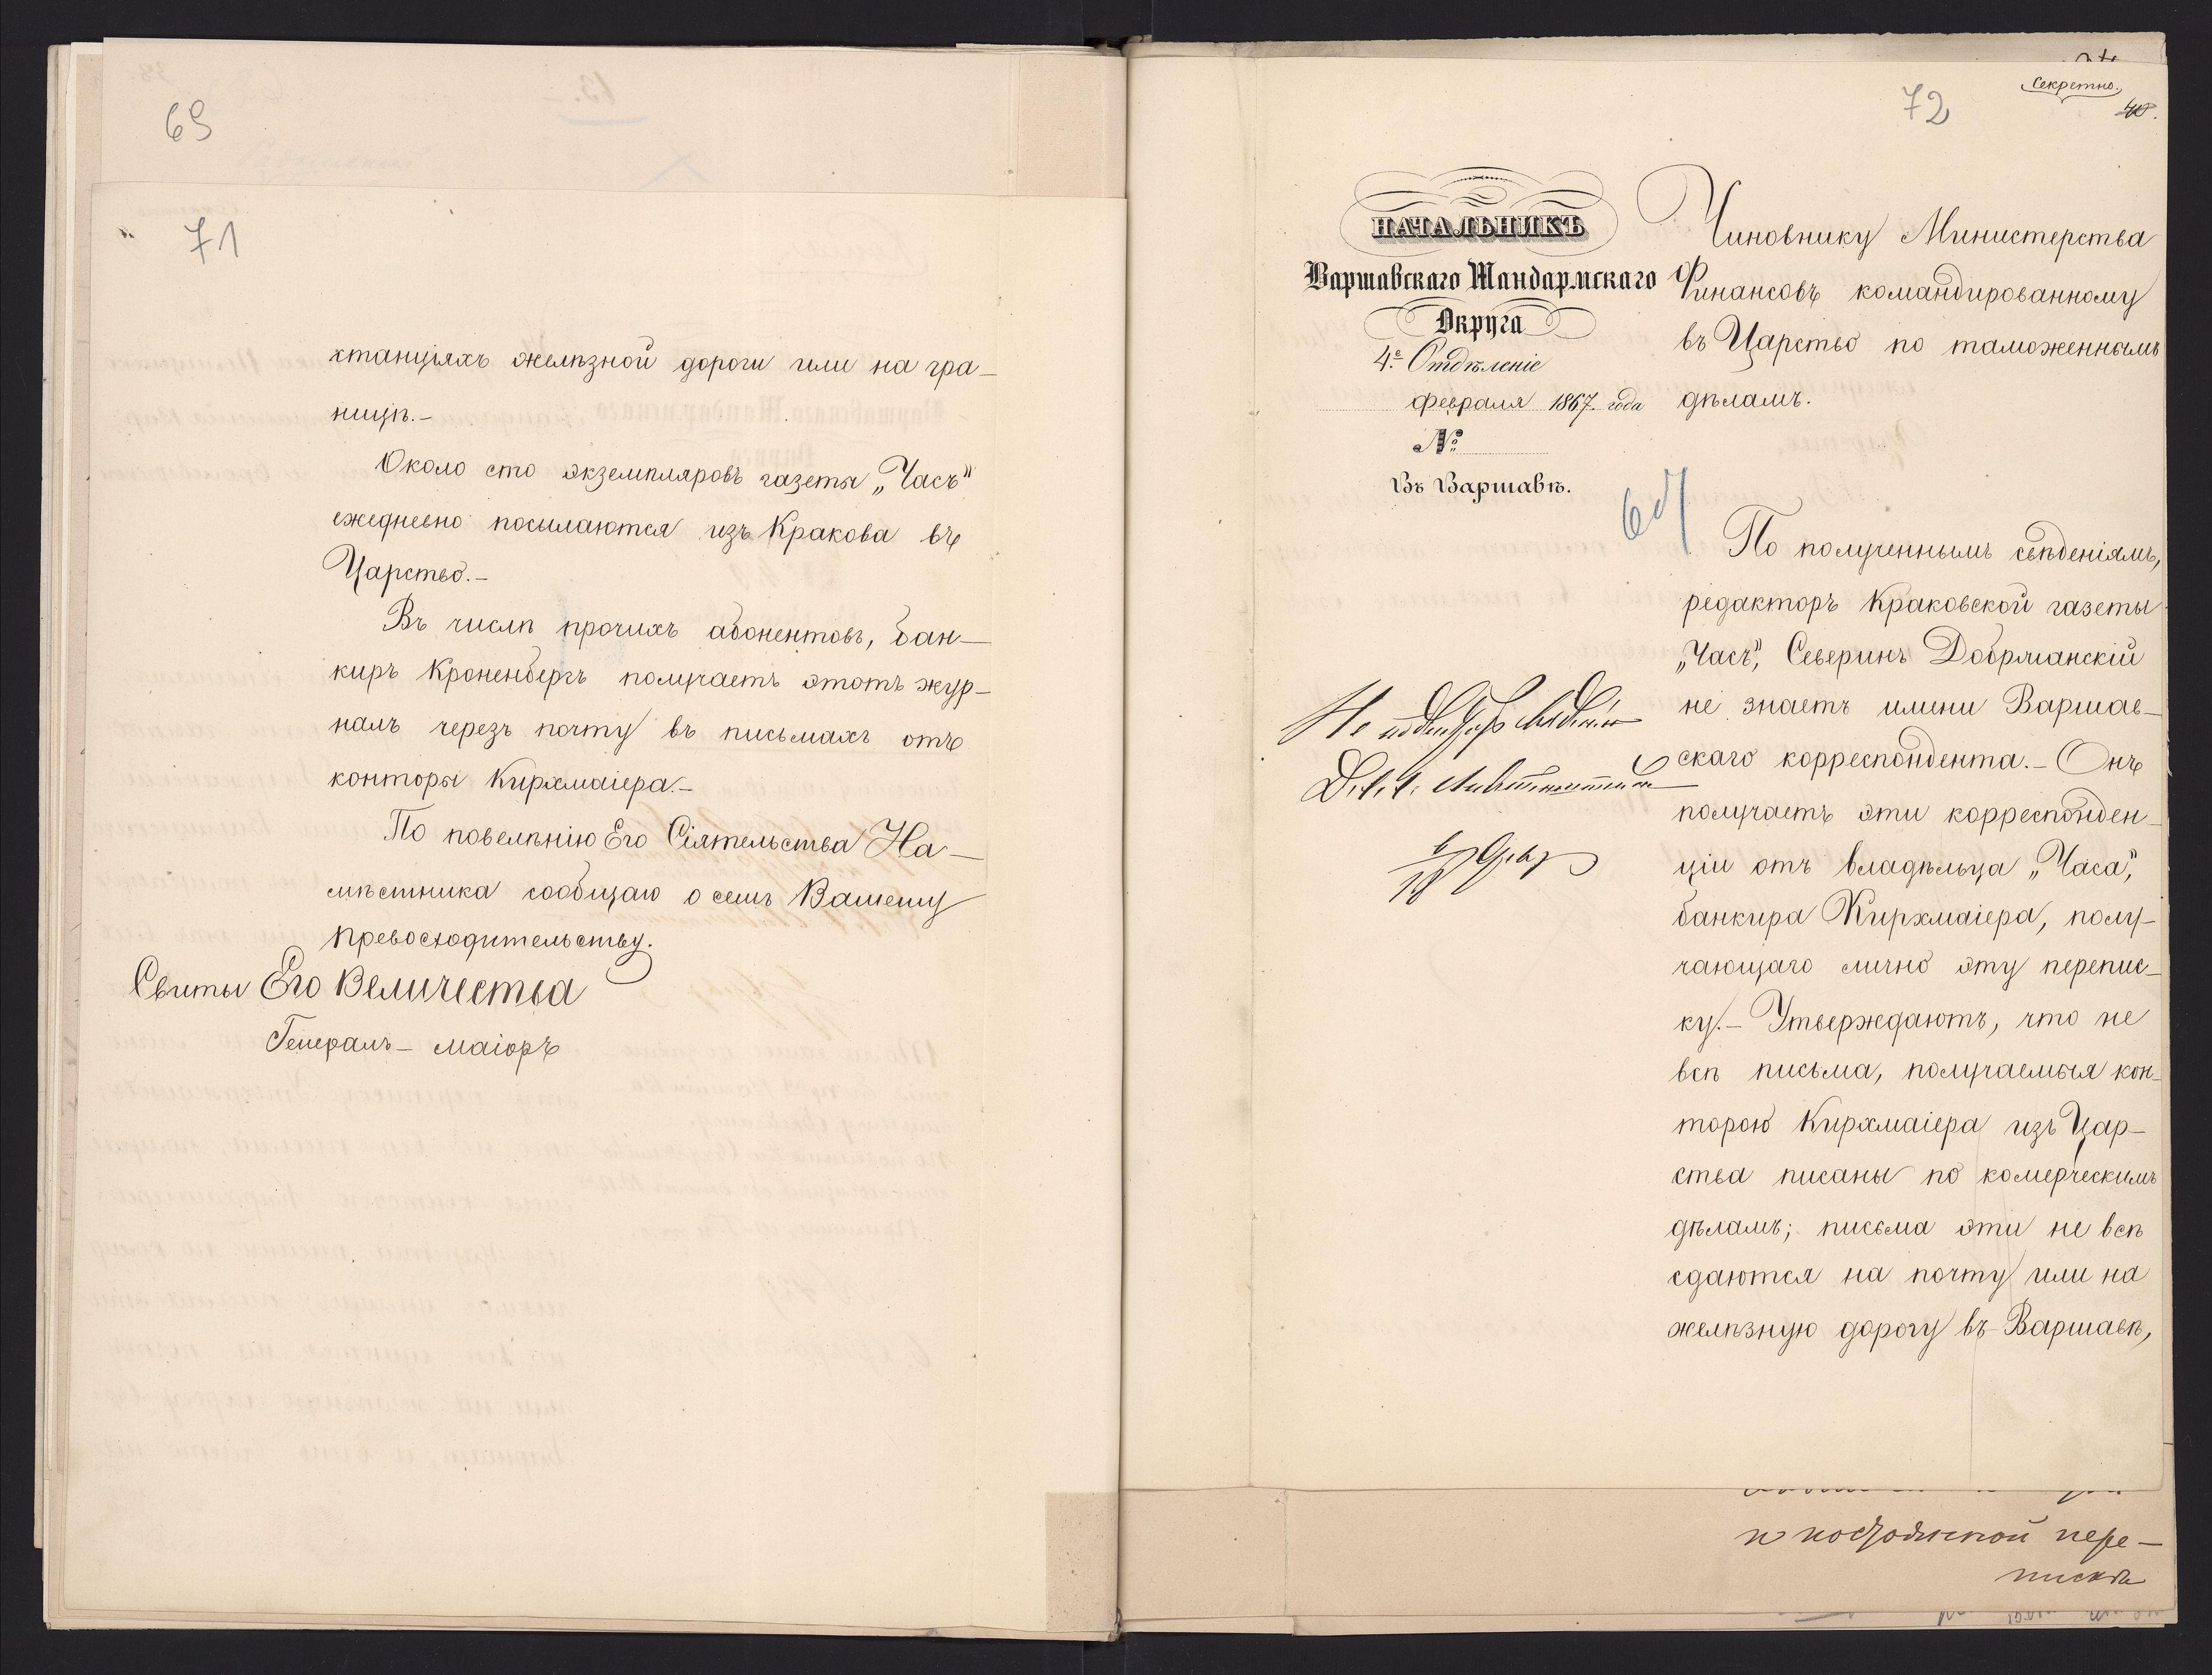 69
71
станціяхъ желѣзной дороги или на гра-
ницѣ.-
Около сто экземпляровъ газеты „Часъ"
ежедневно посылаются изъ Кракова въ
Царство.-
Въ числѣ прочихъ абонентовъ, бан-
киръ Кроненбергъ получаетъ этотъ жур-
налъ черезъ почту въ письмахъ отъ
конторы Кирхмаіера.-
По повелѣнію Его Сіятельства На-
мѣстника сообщаю о семъ Вашему
Превосходительству.
Свиты Его Величества
Генералъ-маіоръ
72
Секретно.
НАЧАЛЬНИКЪ
Варшавскаго Жандармскаго
Округа
4е Отдѣленіе
февраля 1867 года
№
Въ Варшавѣ.
Чиновнику Министерства
Финансовъ командированному
въ Царство по таможеннымъ
дѣламъ.
По полученнымъ свѣденіямъ,
редакторъ Краковской газеты
„Часъ", Северинъ Добржанскій
не знаетъ имени Варшав-
скаго корреспондента.- Онъ
получаетъ эти корреспонден-
ціи отъ владѣльца „Часа",
банкира Кирхмаіера, полу-
чающаго лично эту перепис-
ку.- Утверждаютъ, что не
всѣ письма, получаемыя кон-
торою Кирхмаіера изъ Цар-
ства писаны по комерческимъ
дѣламъ; письма эти не всѣ
сдаются на почту или на
желѣзную дорогу въ Варшавѣ,
пере-
пискѣ